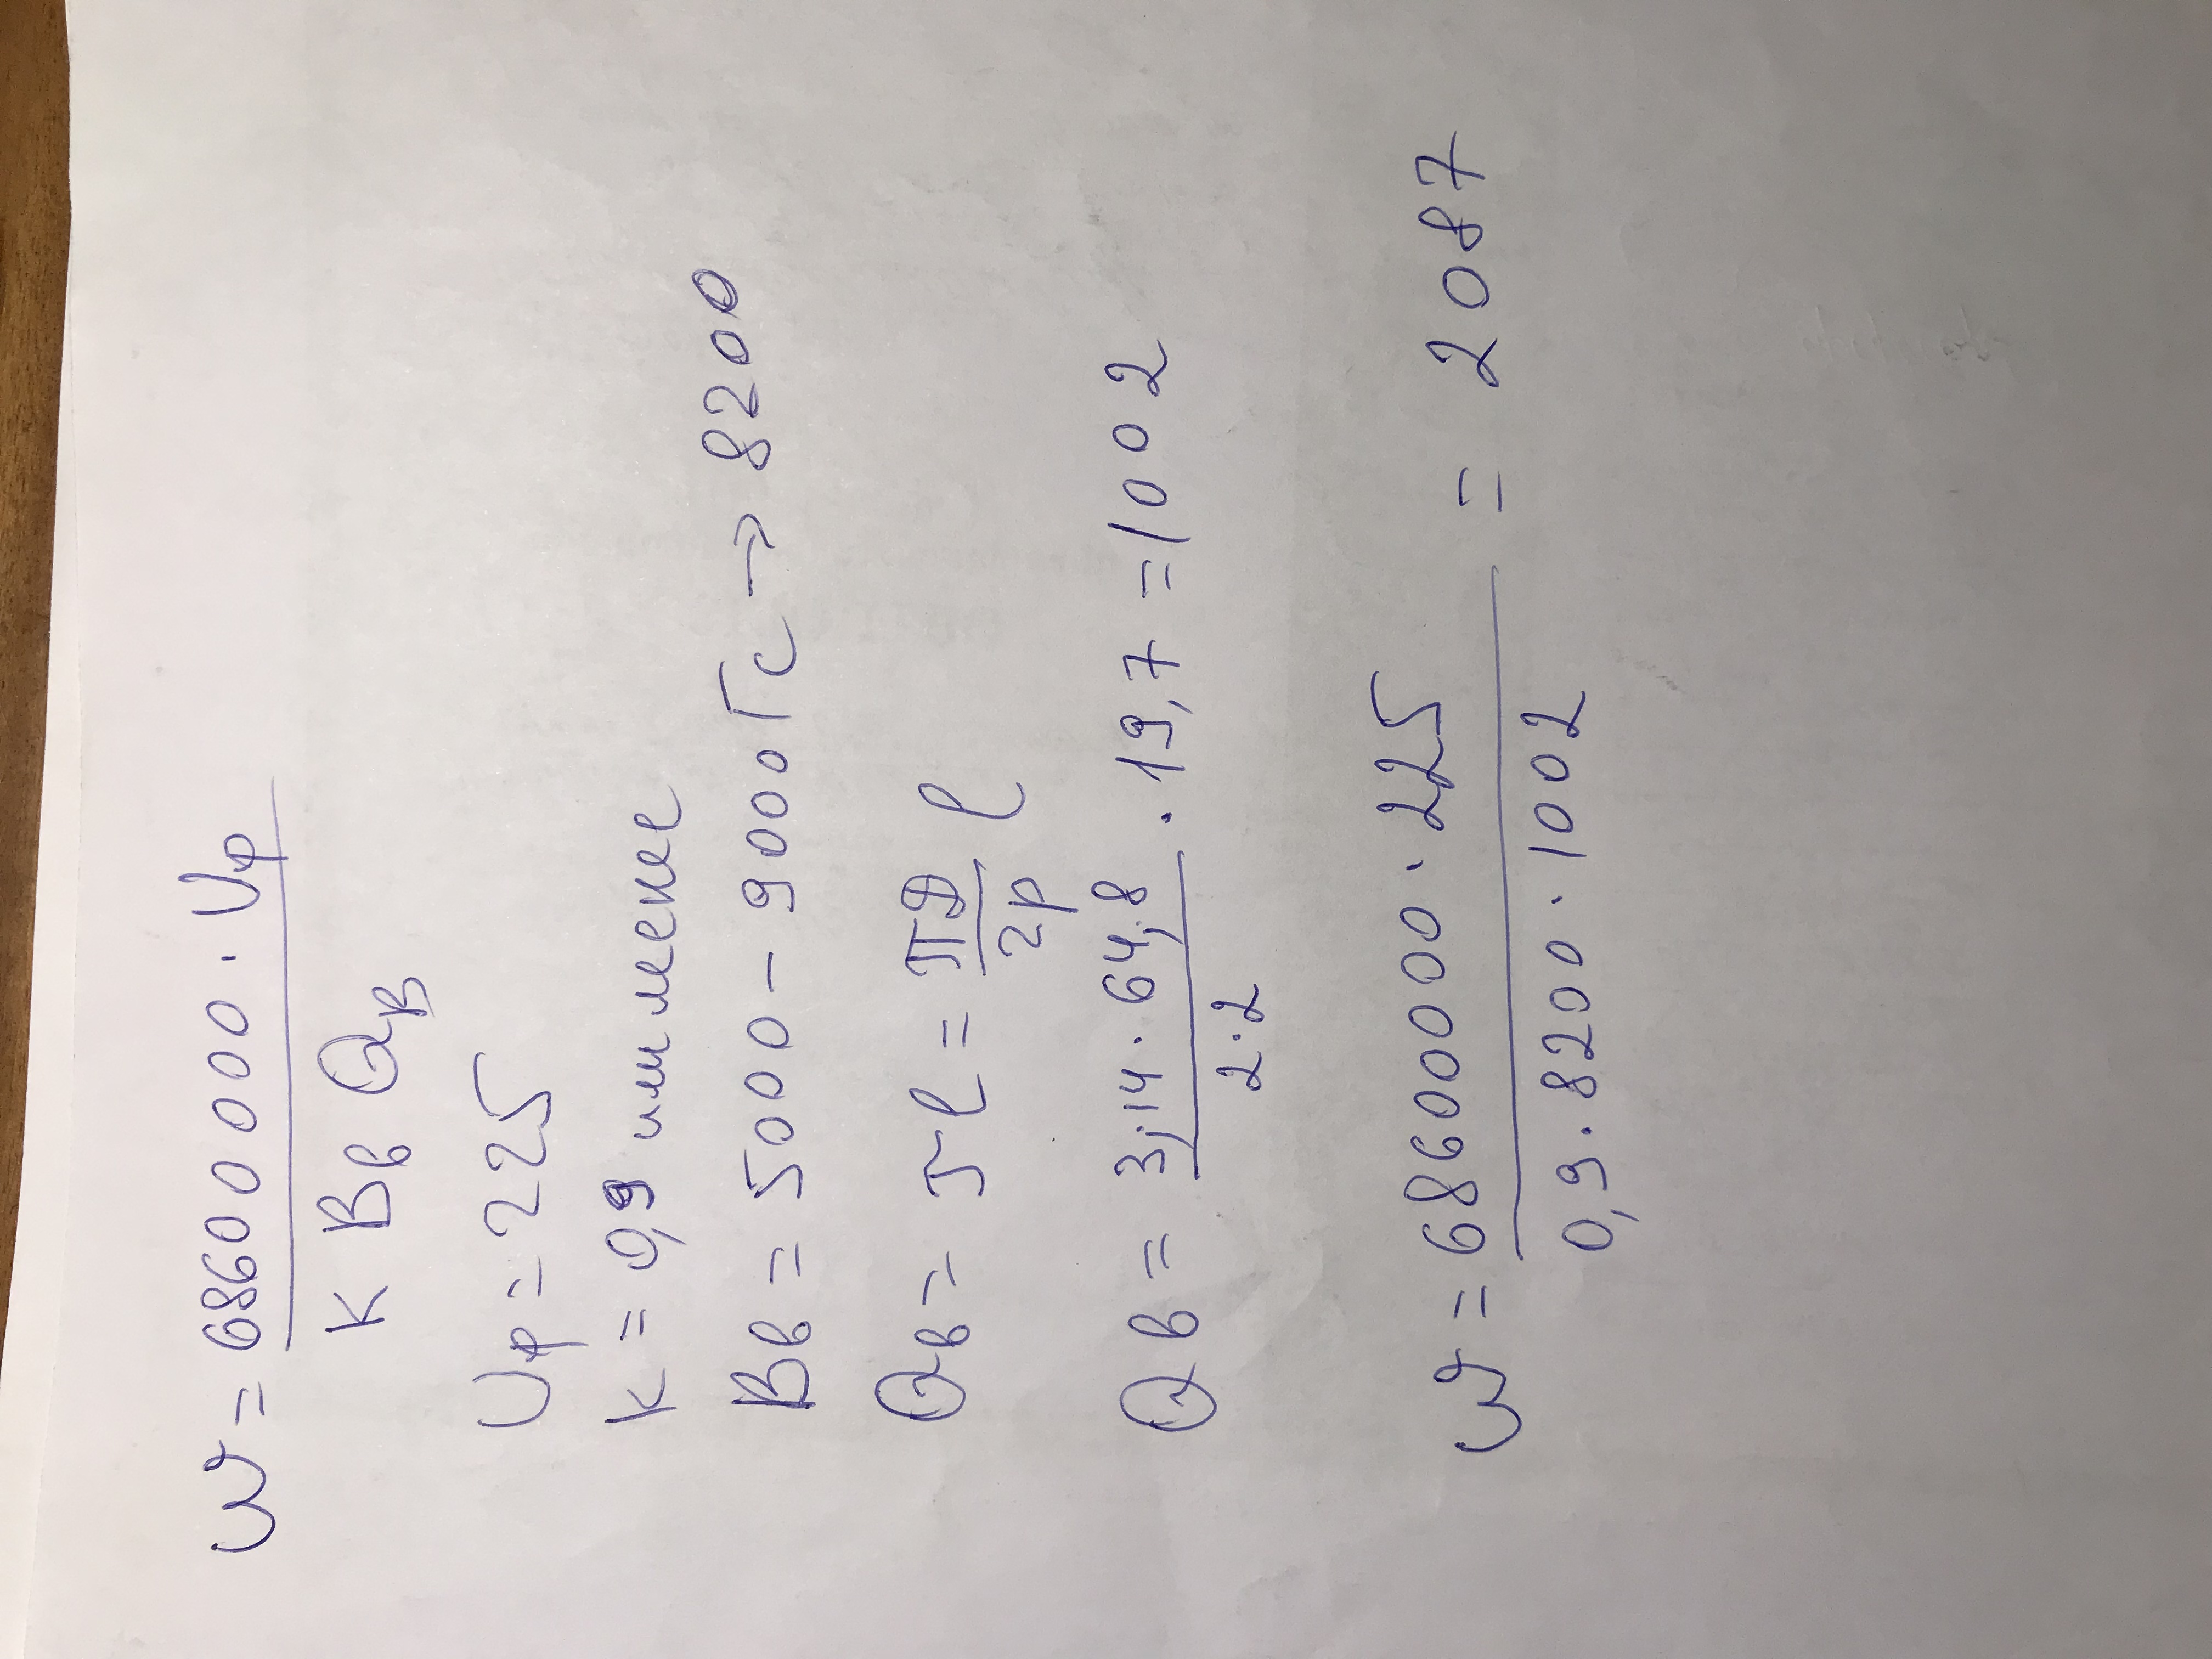 w = 6860 0 000 · Uф
K Bб Qв
Uф = 225
K = 0,9 или менее
Bб = 5000 - 9000 Гс → 8200
Qб = τ l = πD/2p l
Qб = 3,14 · 64,8 / 2·2 · 19,7 = 1002
w = 68600000 · 225 / 0,9 · 8200 · 1002 = 2087